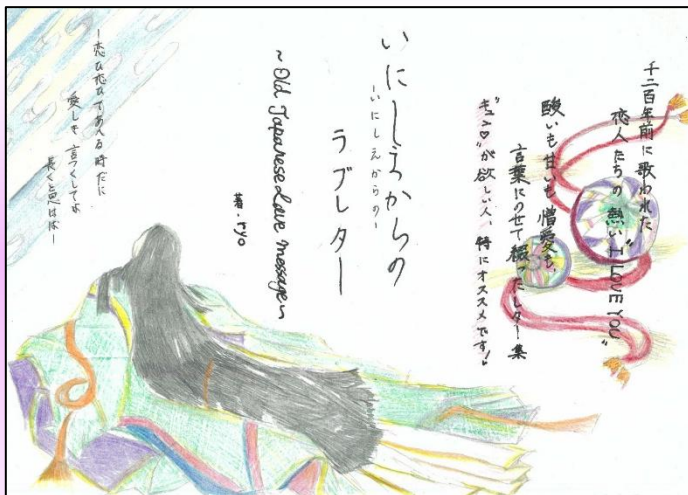 千二百年前に歌われた
恋人たちの熱い"I LOVE YOU"
酸いも甘いも憎愛も、
言葉にのせて綴ったレター集
"キュン♡"が欲しい人、特にオススメです!
いにしゑからの
-いにしえからの-
ラブレター
~Old Japanese Love Message~
著.ryo
―恋ひ恋ひてあへる時だに
愛しき言つくしてよ
長くと思はば―